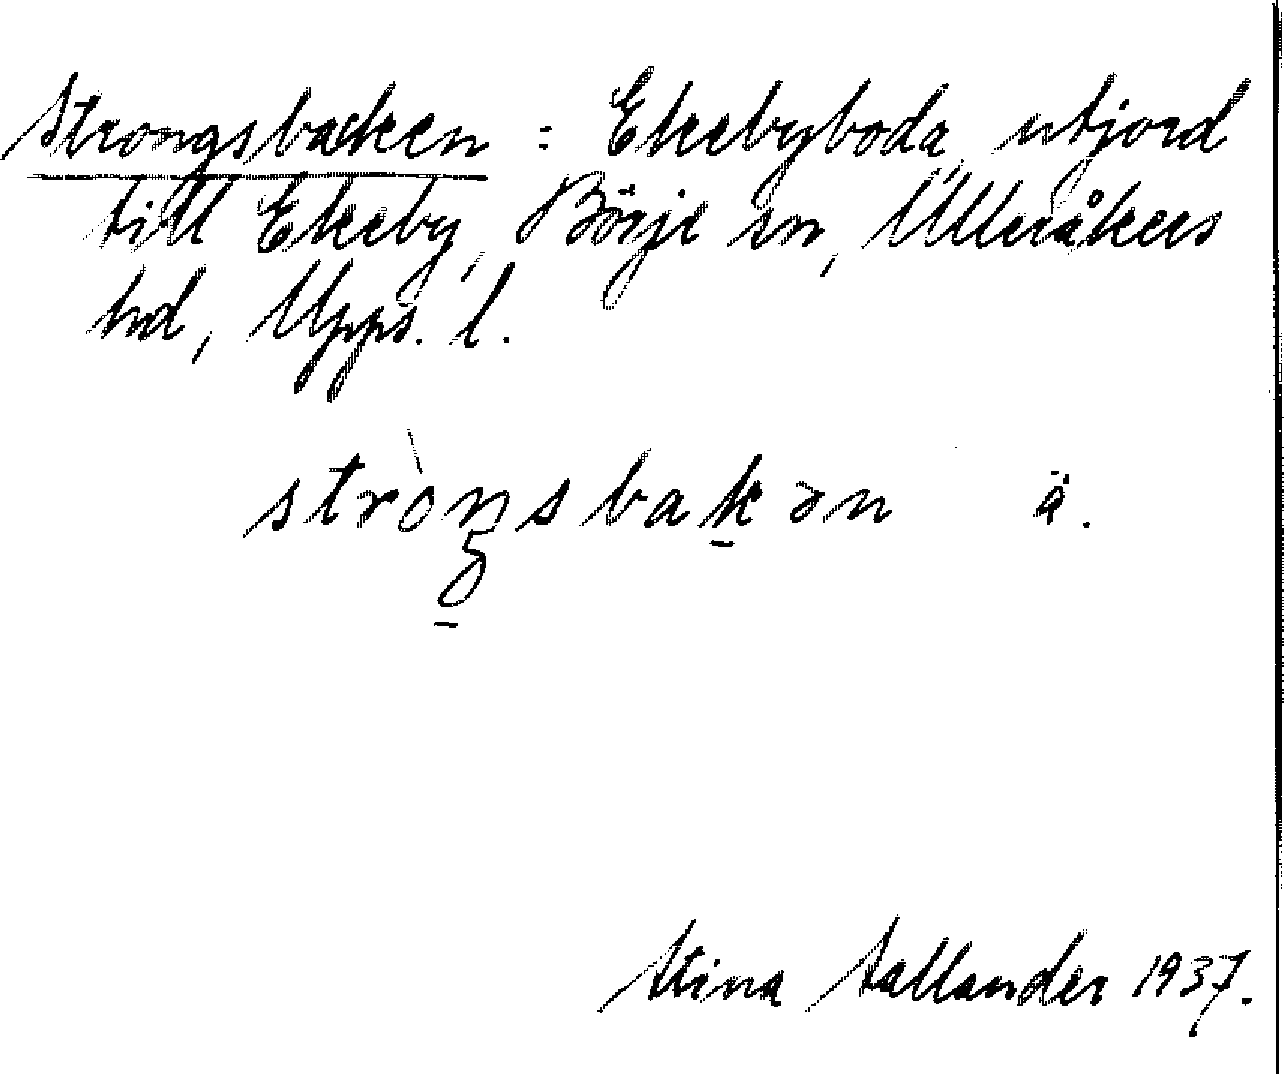 Strongsbacken = Ekebyboda, utjord
till Ekeby, Börje sn, Ulleråkers
hd, Upps. l.
stròŋsbakən ä.
Stina Sallander 1937.